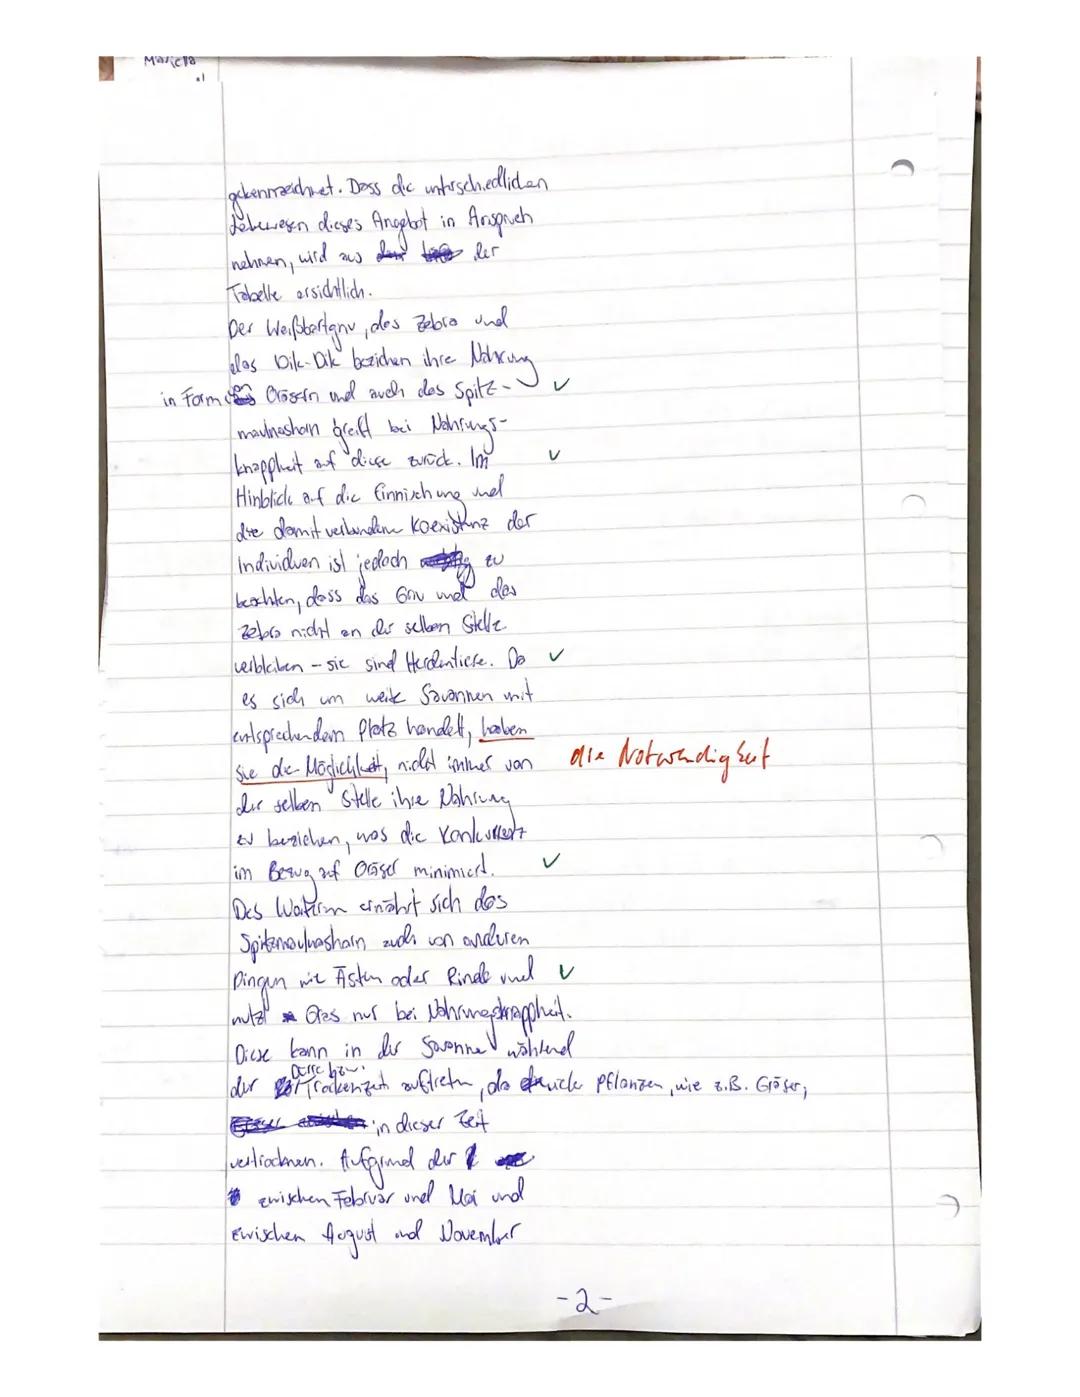 Mariella
gekennzeichnet. Dass die unterschiedlichen
Lebewesen dieses Angebot in Anspruch
nehmen, wird aus der
Tabelle ersichtlich.
Der Weißbartgnu, das Zebra und
das Dik-Dik beziehen ihre Nahrung
in Form von Gräsern und auch das Spitz- ✓
maulnashorn greift bei Nahrungs-
knappheit auf diese zurück. Im ✓
Hinblick auf die Einnischung und
die damit verbundene Koexistenz der
Individuen ist jedoch zu
beachten, dass das Gnu und das
Zebra nicht an der selben Stelle
verbleiben – sie sind Herdentiere. Da ✓
es sich um weite Savannen mit
entsprechendem Platz handelt, haben
sie die Möglichkeit, nicht immer von die Notwendigkeit
der selben Stelle ihre Nahrung
zu beziehen, was die Konkurrenz
im Bezug auf Gräser minimiert. ✓
Des Weiteren ernährt sich das
Spitzmaulnashorn auch von anderen
Dingen wie Ästen oder Rinde und ✓
nutzt Gras nur bei Nahrungsknappheit.
Diese kann in der Savanne während
der Dürre bzw. Trockenzeit auftreten, da viele Pflanzen, wie z.B. Gräser,
in dieser Zeit
vertrocknen. Aufgrund der
zwischen Februar und Mai und
zwischen August und November
-2-